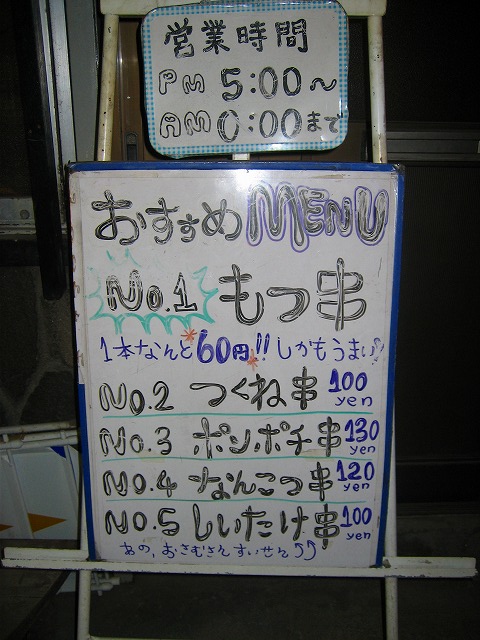 営業時間
PM 5:00～
AM 0:00まで
おすすめ MENU
No.1 もつ串
1本なんと 60円!! しかもうまい♪
No.2 つくね串 100 yen
No.3 ポンポチ串 130 yen
No.4 なんこつ串 120 yen
No.5 しいたけ串 100 yen
あの、おさむさんすいせん